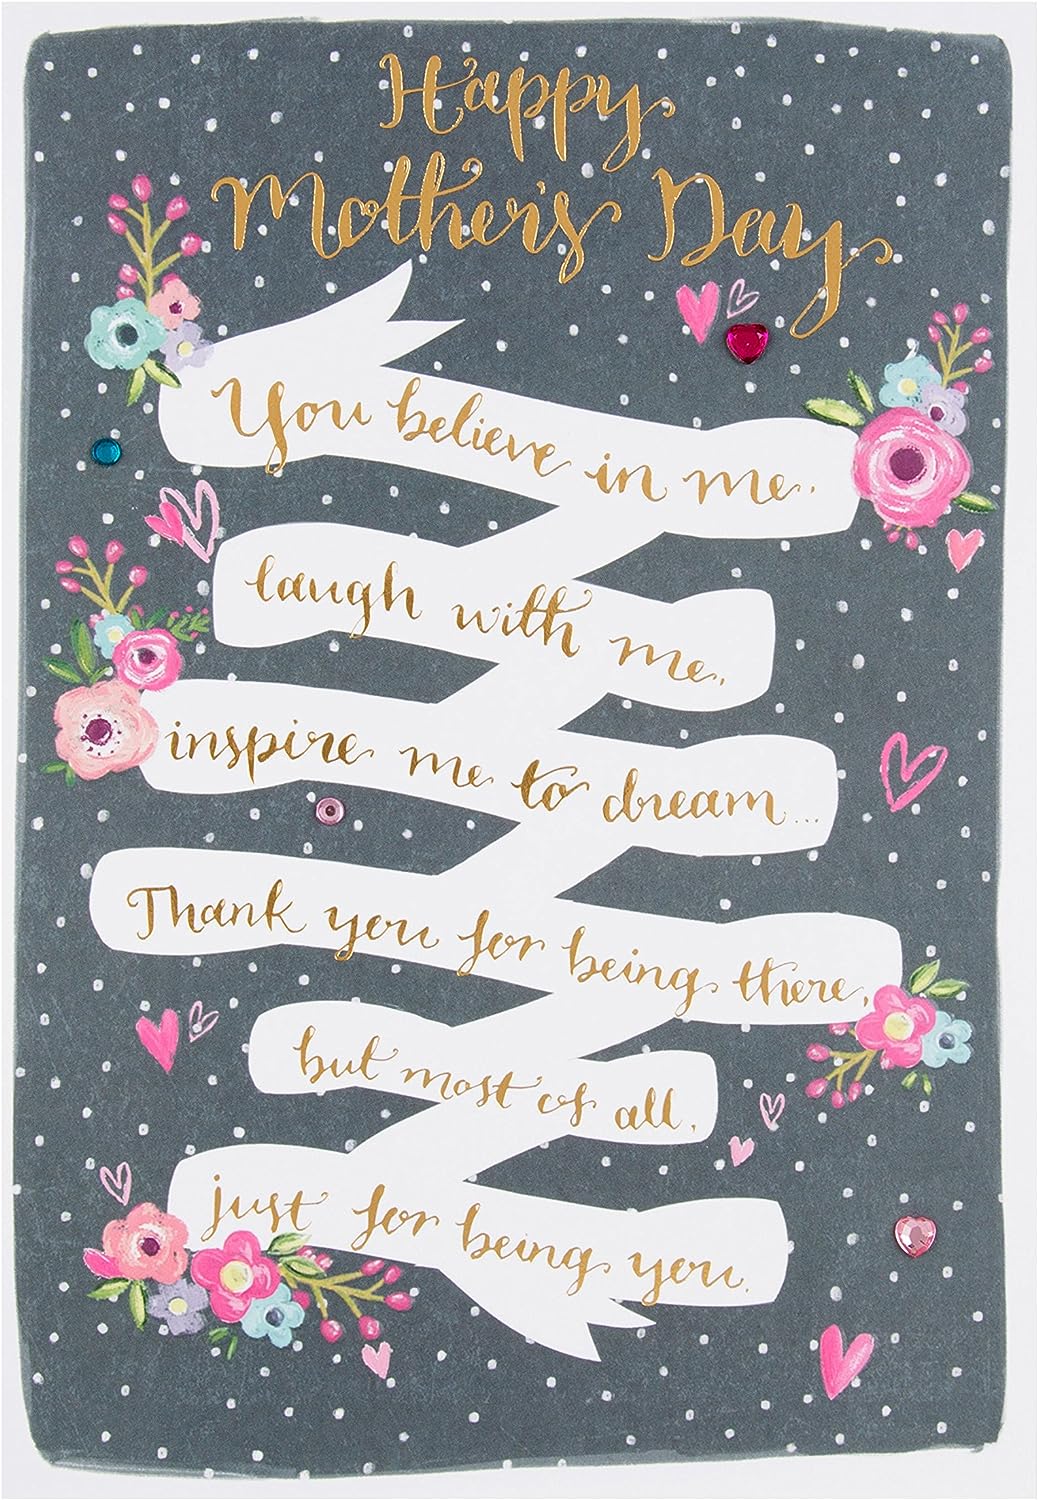 Happy
Mother's Day
You believe in me,
laugh with me,
inspire me to dream...
Thank you for being there,
but most of all,
just for being you.